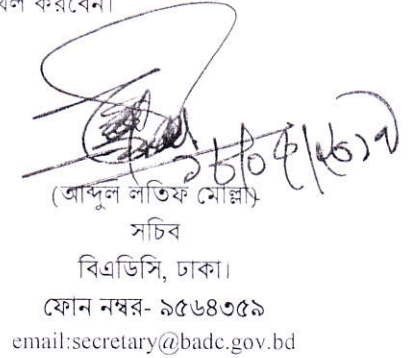 করবেন।
(আব্দুল লতিফ মোল্লা)
সচিব
বিএডিসি, ঢাকা।
ফোন নম্বর- ৯৫৬৪৩৫৯
email:secretary@badc.gov.bd